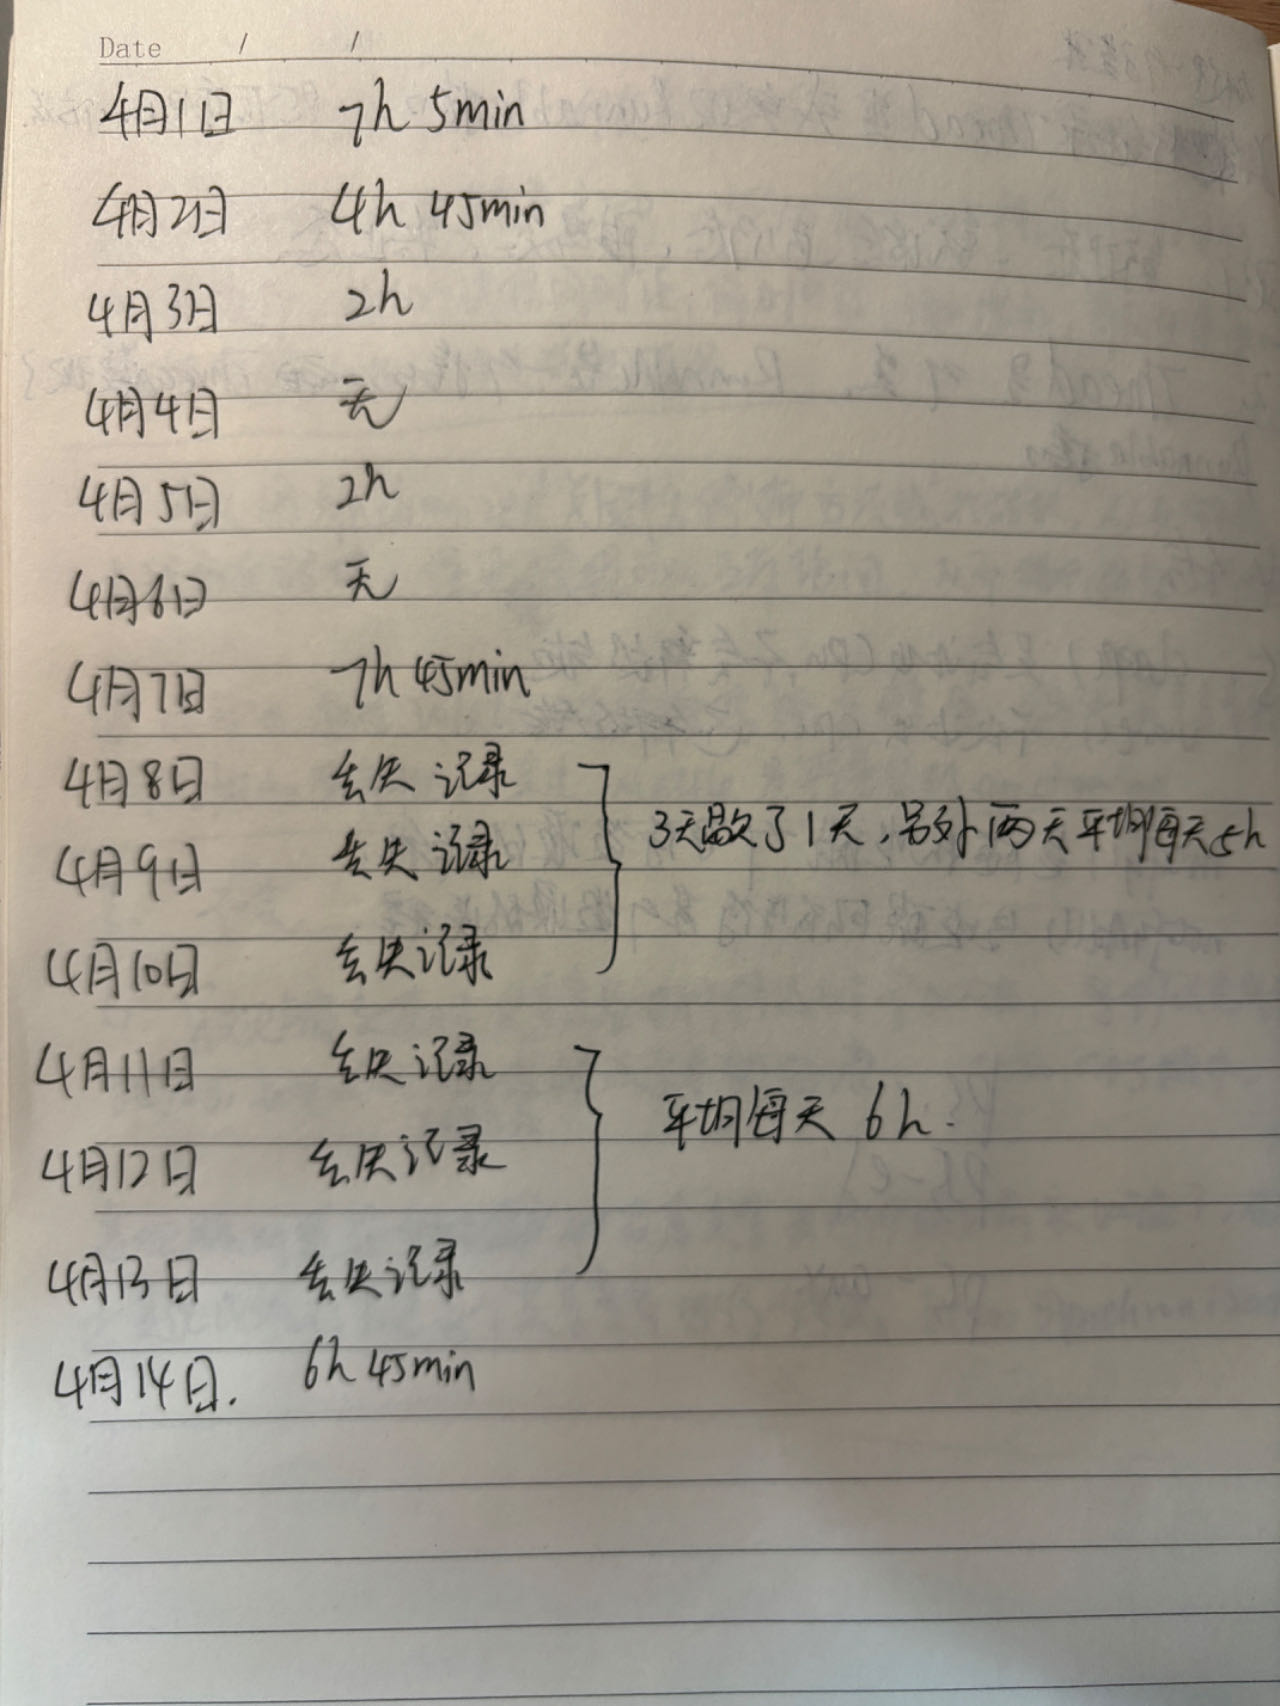 Date / /
4月1日 7h 5min
4月2日 4h 45min
4月3日 2h
4月4日 无
4月5日 2h
4月6日 无
4月7日 7h 45min
4月8日 丢失记录
3天歇了1天,另外两天平均每天5h
4月9日 丢失记录
4月10日 丢失记录
4月11日 丢失记录
平均每天 6h.
4月12日 丢失记录
4月13日 丢失记录
4月14日. 6h 45min